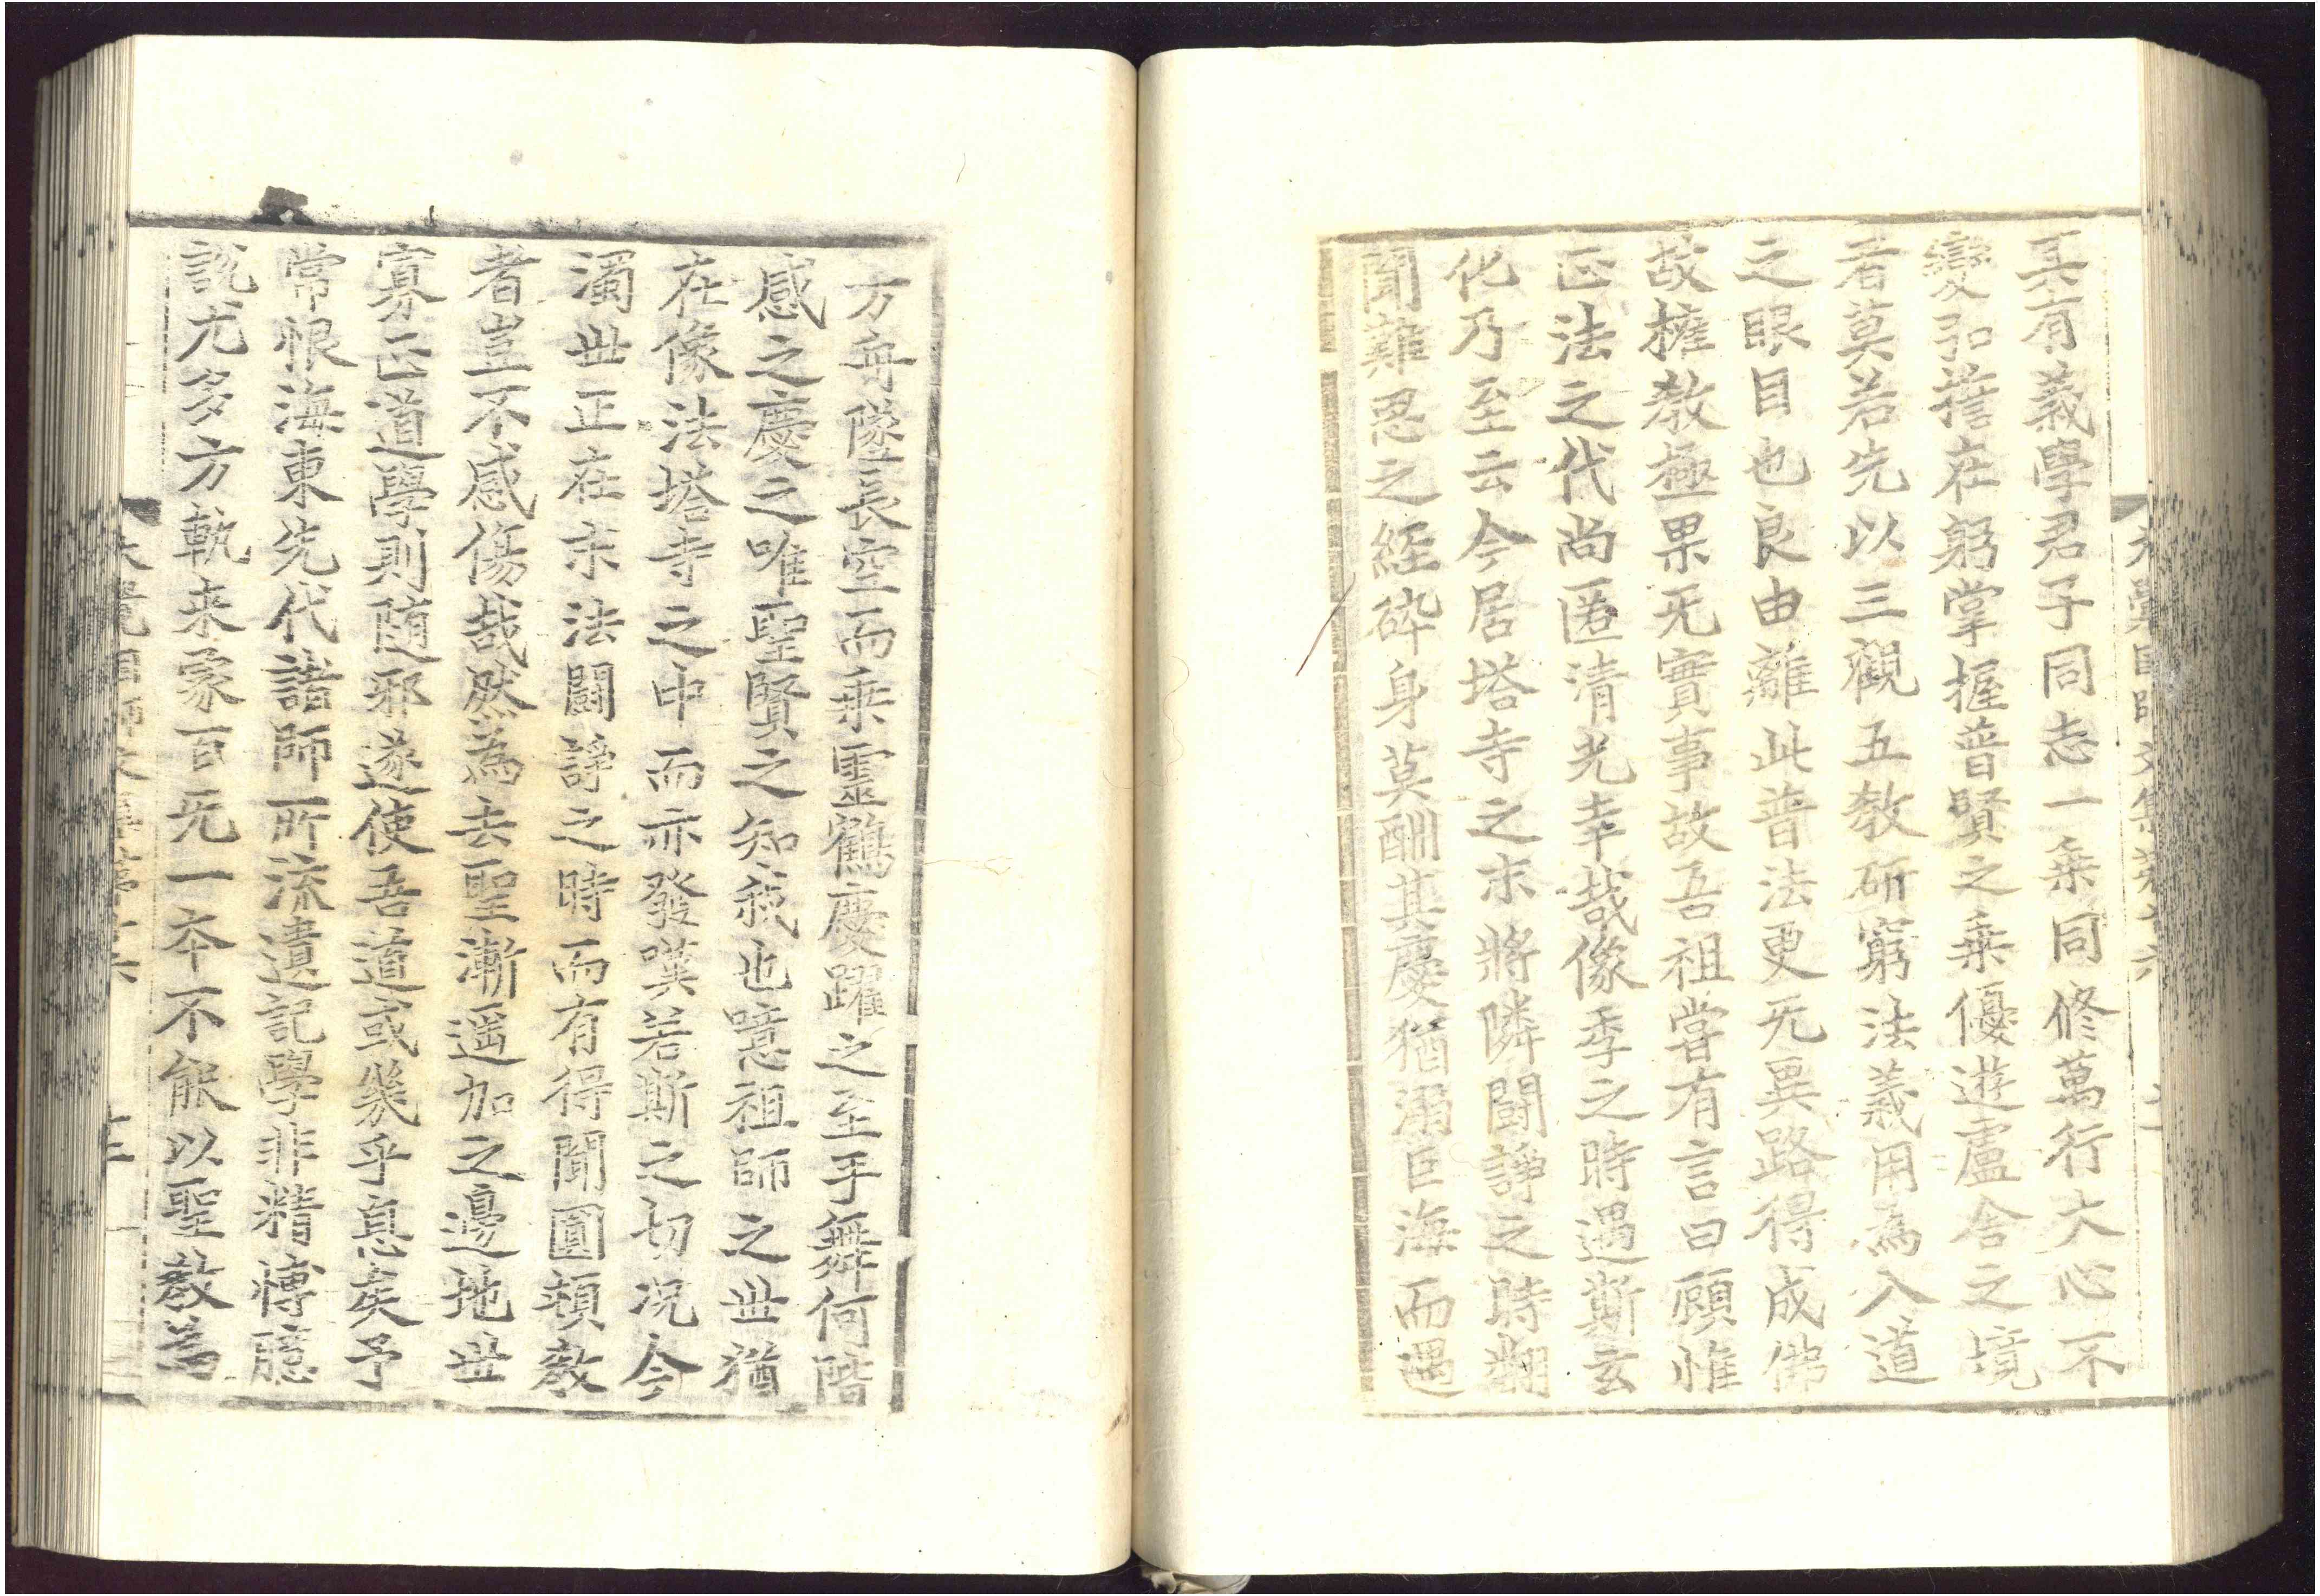 大覺國師文集第十六
其有義學君子同志一乗同修萬行大心不
變弘誓在躬掌握普賢之乗優遊盧舍之境
者莫若先以三觀五敎研窮法義用為入道
之眼目也良由離此普法更无異路得成佛
故權敎極果无實事故吾祖甞有言曰顧惟
正法之代尚匿清光幸㦲像季之時遇斯玄
化乃至云今居塔寺之末將隣闘諍之時翻
聞難思之經碎身莫酬其慶猶溺巨海而遇
方舟墜長空而乗靈鶴慶躍之至手舞何階
感之慶之唯聖賢之知我也噫祖師之世猶
在像法塔寺之中而亦發嘆若斯之切况今
濁世正在末法闘諍之時而有得聞圓頓敎
者豈不感傷哉然為去聖漸遥加之邊地世
寡正道學則随邪遂使吾道或幾乎息矣予
常恨海東先代諸師所流遺記學非精博臆
說尤多方軌来蒙百无一夲不能以聖敎為
大覺國師文集第十六